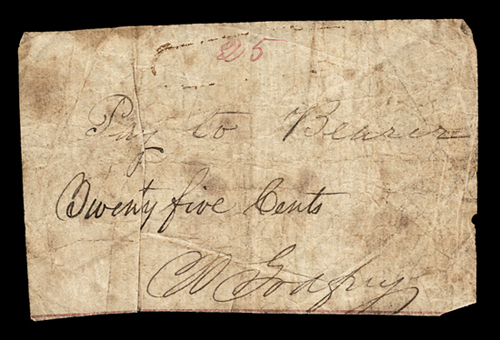 25
Pay to Bearer
Twenty five Cents
W Godfrey